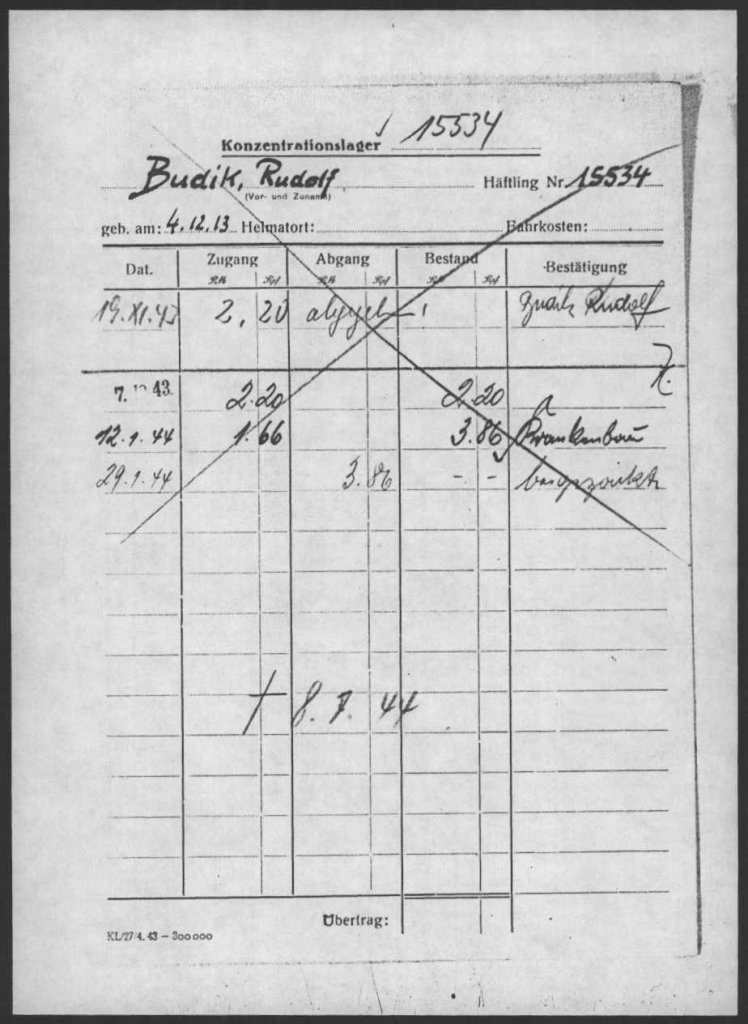 Konzentrationslager 15534
Budik, Rudolf Häftling Nr. 15534
(Vor- und Zuname)
geb. am: 4.12.13 Heimatort: Fahrkosten:
Dat. Zugang Abgang Bestand Bestätigung
RM Rpf RM Rpf RM Rpf
19.XI.43 2,20 Budik Rudolf
7. 43. 2.20 2.20
12.1.44 1.66 3.86 Krankenbau
29.1.44 3.86 - -
† 8.7.44
Übertrag:
KL/27/4.43 – 300000